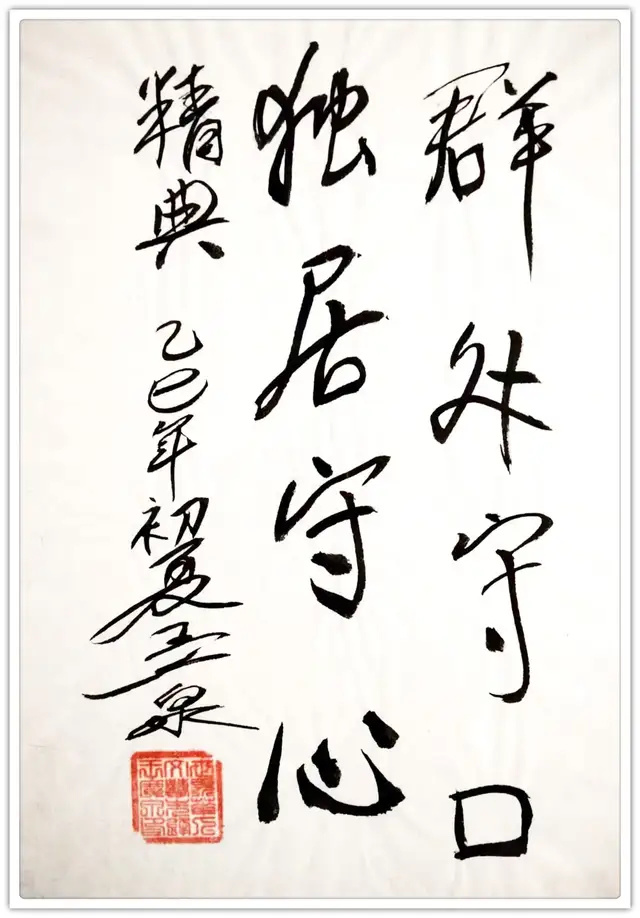 群处守口
独居守心
精典
乙巳年初夏王泉